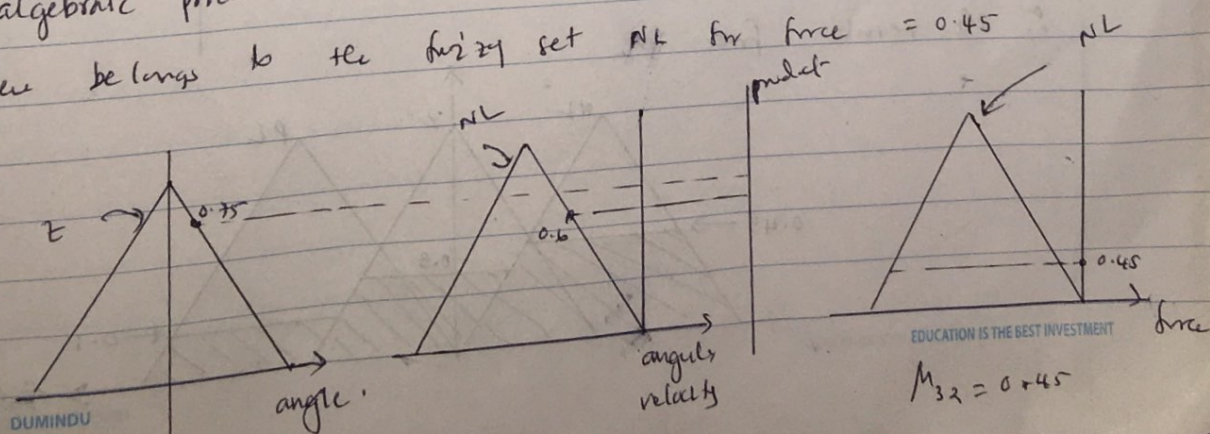 algebraic
belongs to the fuzzy set NL for force = 0.45
NL
product
NL
Z
0.75
0.6
0.45
angle.
angular
velocity
force
EDUCATION IS THE BEST INVESTMENT
M32 = 0.45
DUMINDU